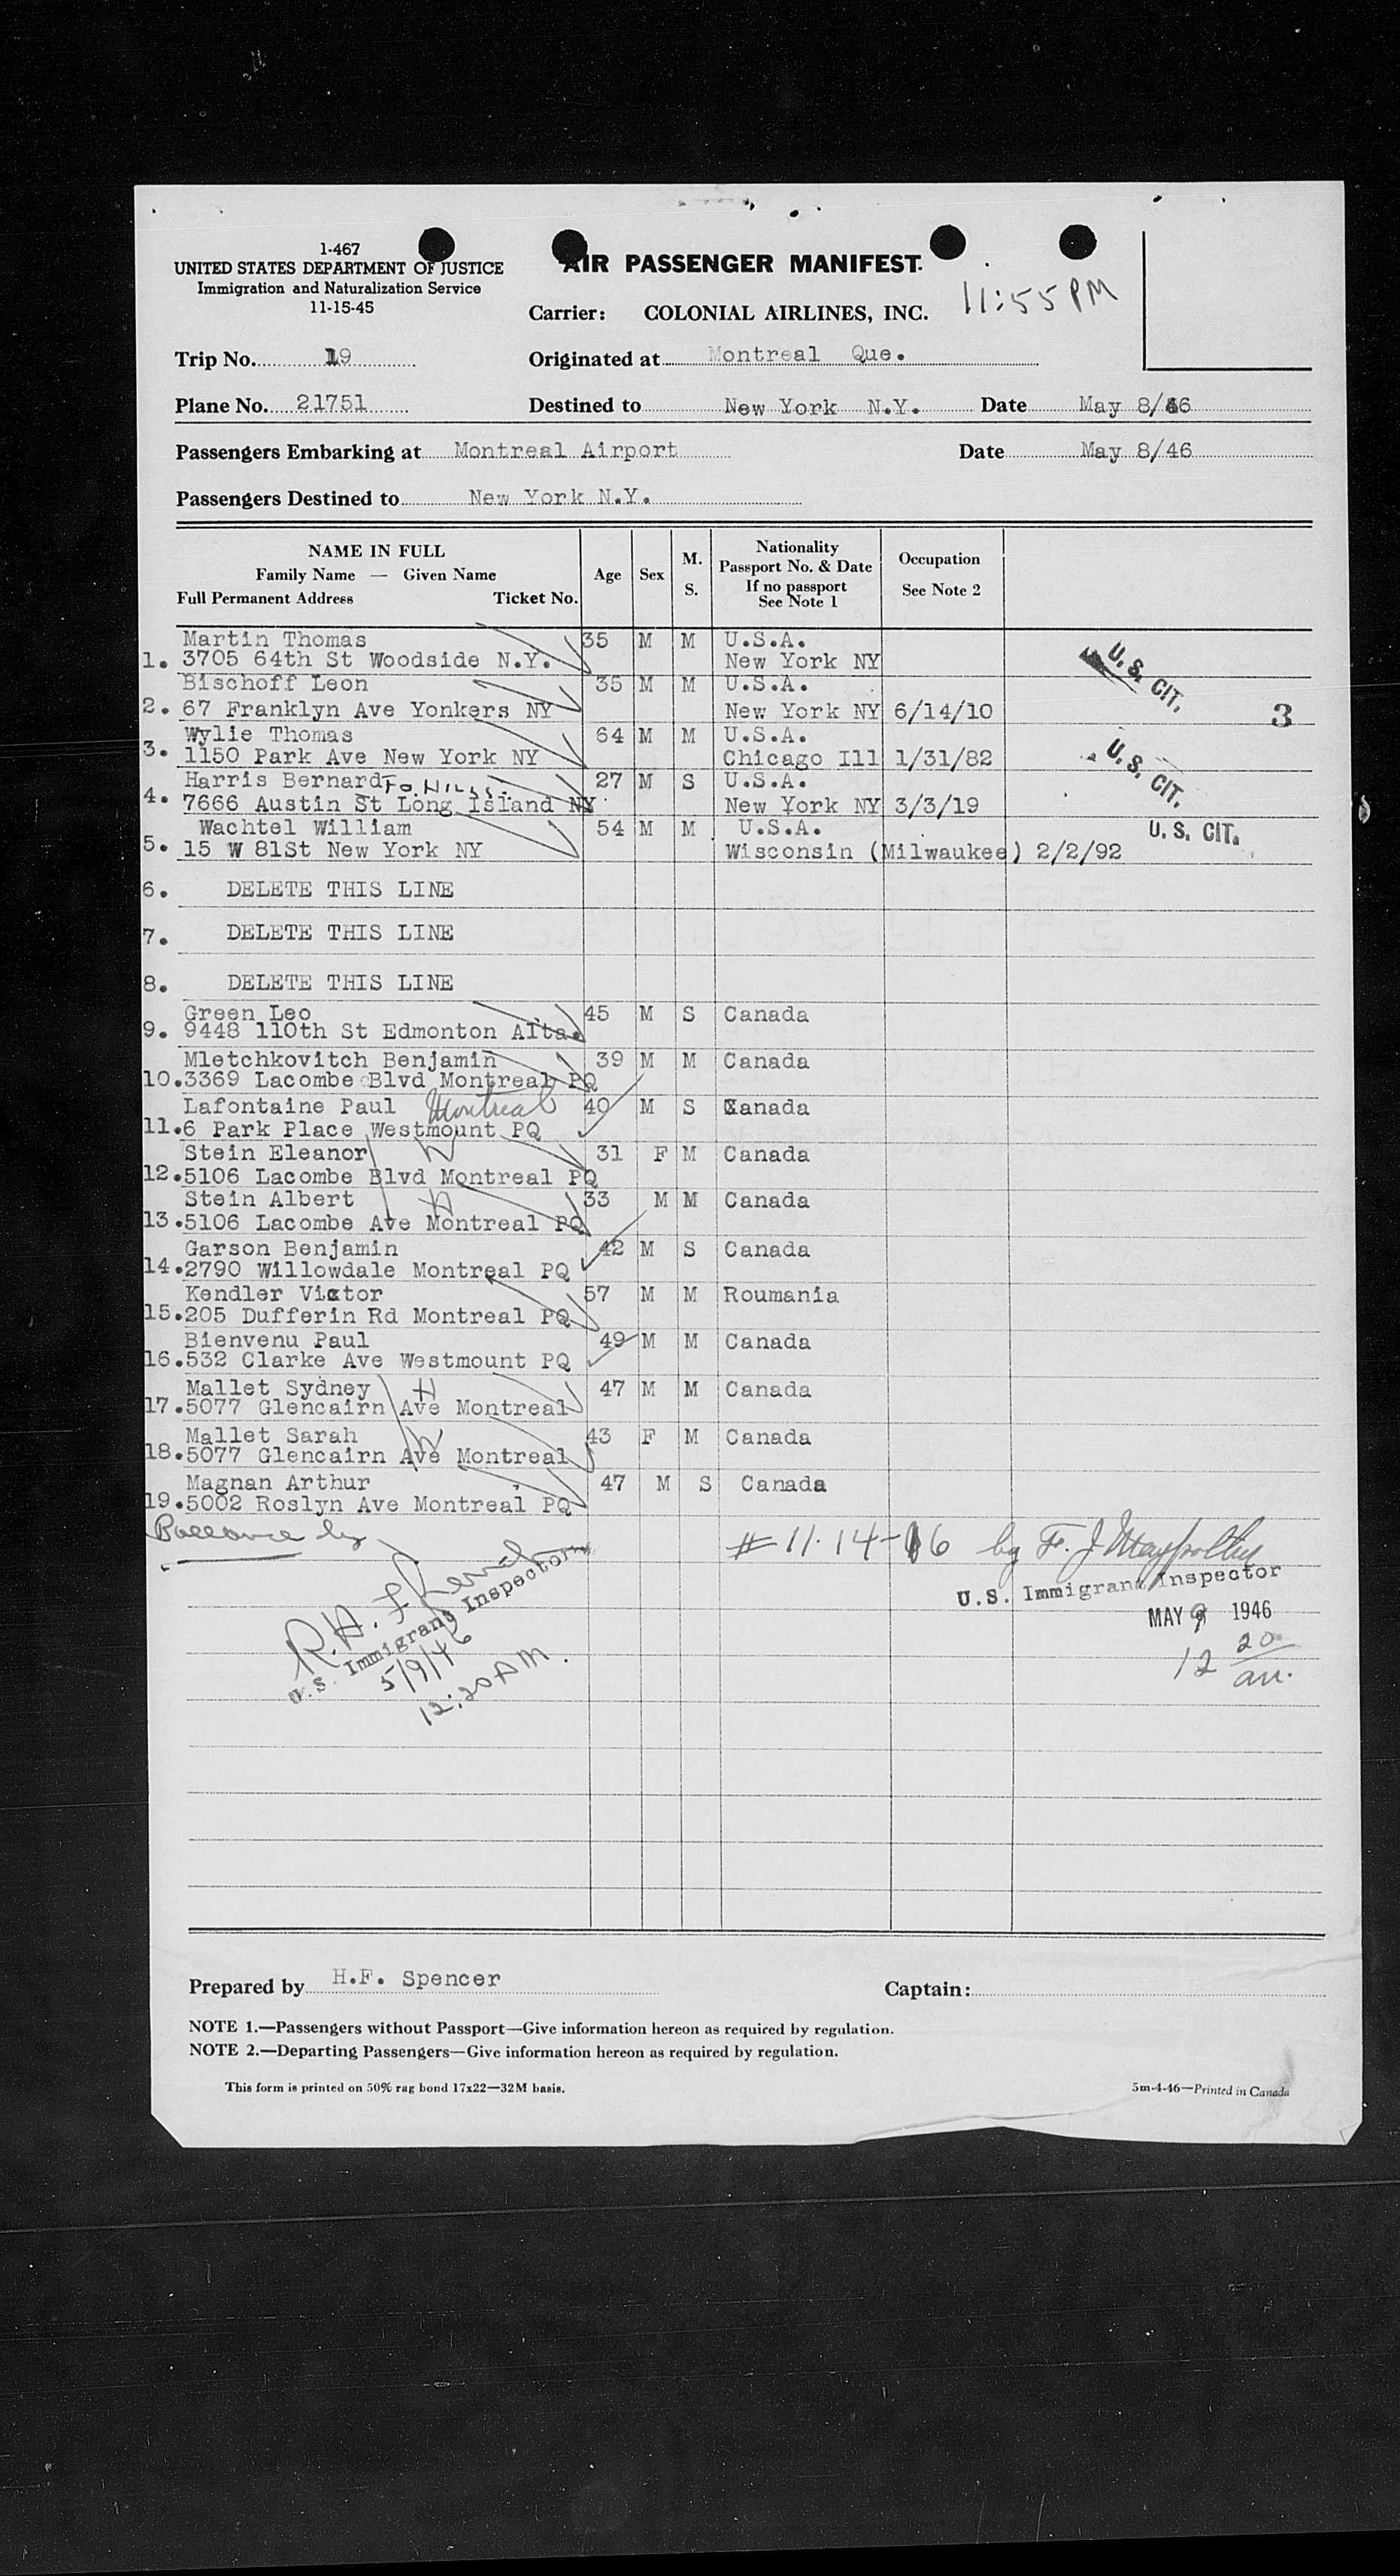 1-467
UNITED STATES DEPARTMENT OF JUSTICE
Immigration and Naturalization Service
11-15-45
AIR PASSENGER MANIFEST.
Carrier: COLONIAL AIRLINES, INC.
11:55 PM
Trip No. 19
Originated at Montreal Que.
Plane No. 21751
Destined to New York N.Y. Date May 8/46
Passengers Embarking at Montreal Airport Date May 8/46
Passengers Destined to New York N.Y.
NAME IN FULL
Family Name — Given Name
Full Permanent Address Ticket No.
Age
Sex
M.
S.
Nationality
Passport No. & Date
If no passport
See Note 1
Occupation
See Note 2
Martin Thomas 35 M M U.S.A.
1. 3705 64th St Woodside N.Y. New York NY
U.S. CIT.
Bischoff Leon 35 M M U.S.A.
2. 67 Franklyn Ave Yonkers NY New York NY 6/14/10
3
Wylie Thomas 64 M M U.S.A.
3. 1150 Park Ave New York NY Chicago Ill 1/31/82
U.S. CIT.
Harris Bernard Fo. Hills. 27 M S U.S.A.
4. 7666 Austin St Long Island NY New York NY 3/3/19
Wachtel William 54 M M U.S.A.
U. S. CIT.
5. 15 W 81St New York NY Wisconsin (Milwaukee) 2/2/92
6. DELETE THIS LINE
7. DELETE THIS LINE
8. DELETE THIS LINE
Green Leo 45 M S Canada
9. 9448 110th St Edmonton Alta.
Mletchkovitch Benjamin 39 M M Canada
10. 3369 Lacombe Blvd Montreal PQ
Lafontaine Paul Montreal 40 M S Canada
11. 6 Park Place Westmount PQ
Stein Eleanor W 31 F M Canada
12. 5106 Lacombe Blvd Montreal PQ
Stein Albert H 33 M M Canada
13. 5106 Lacombe Ave Montreal PQ
Garson Benjamin 42 M S Canada
14. 2790 Willowdale Montreal PQ
Kendler Victor 57 M M Roumania
15. 205 Dufferin Rd Montreal PQ
Bienvenu Paul 49 M M Canada
16. 532 Clarke Ave Westmount PQ
Mallet Sydney H 47 M M Canada
17. 5077 Glencairn Ave Montreal
Mallet Sarah W 43 F M Canada
18. 5077 Glencairn Ave Montreal
Magnan Arthur 47 M S Canada
19. 5002 Roslyn Ave Montreal PQ
by
# 11-14-16 by F. J.
U.S. Immigrant Inspector
MAY 9 1946
12 20
am.
R.H.
U.S. Immigrant Inspector
5/9/46
12:20 AM.
Prepared by H.F. Spencer
Captain:
NOTE 1.—Passengers without Passport—Give information hereon as required by regulation.
NOTE 2.—Departing Passengers—Give information hereon as required by regulation.
This form is printed on 50% rag bond 17x22—32M basis.
5m-4-46—Printed in Canada